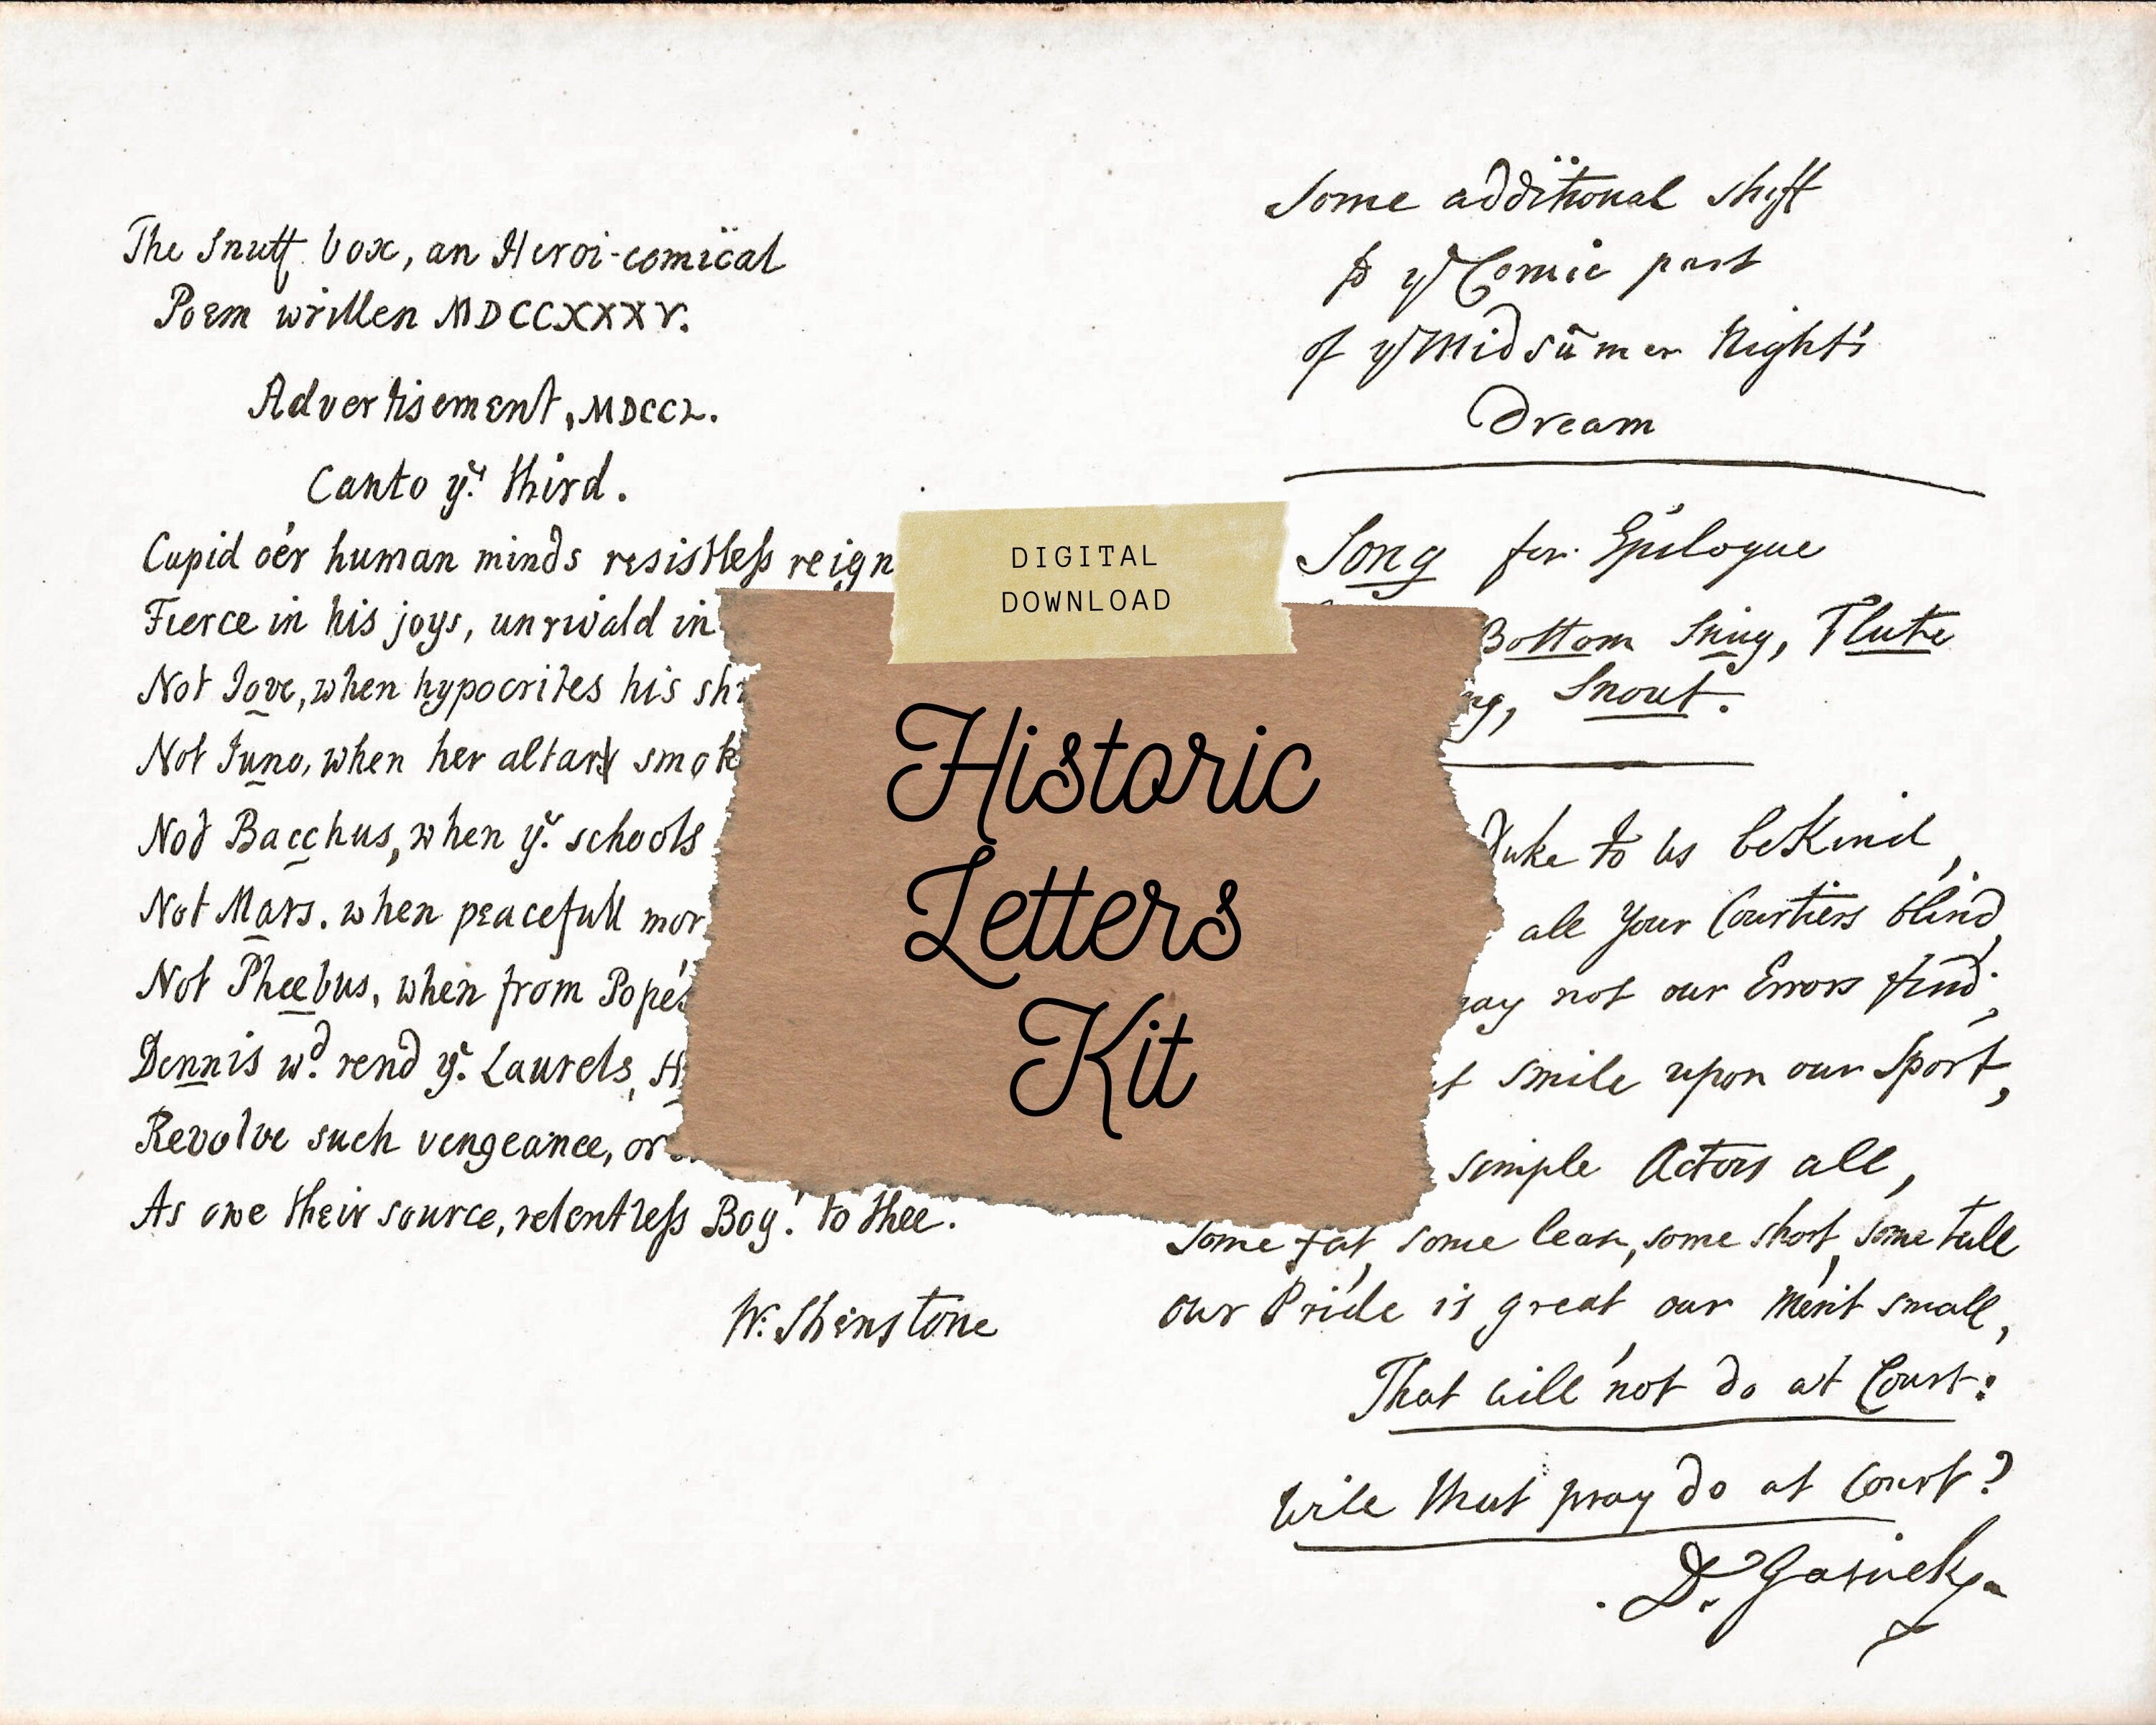 The Snuff box, an Heroi-comical
Poem written MDCCXXXV.
Advertisement, MDCCL.
Canto yᵉ third.
Cupid o'er human minds resistless reign
Fierce in his joys, unrivald in
Not Jove, when hypocrites his
Not Juno, when her altars smok
Nod Bacchus, when yᵉ schools
Not Mars. when peacefull mor
Not Phœbus, when from Pope's
Dennis wᵈ rend yᵉ Laurels,
Revolve such vengeance, or
As owe their source, relentless Boy! to thee.
W. Shenstone
DIGITAL
DOWNLOAD
Historic
Letters
Kit
Some additional Shiff
to yᵉ Comic part
of yᵉ Midsūmer Night's
Dream
Song for Epilogue
Bottom Snug, Flute
Snout.
Duke to us be Kind,
all Your Courtiers blind,
may not our Errors find,
smile upon our Sport,
simple Actors all,
Some fat, some lean, some short, some tall
Our Pride is great our Merit small,
That will not do at Court:
Will that pray do at Court?
D. Garrick